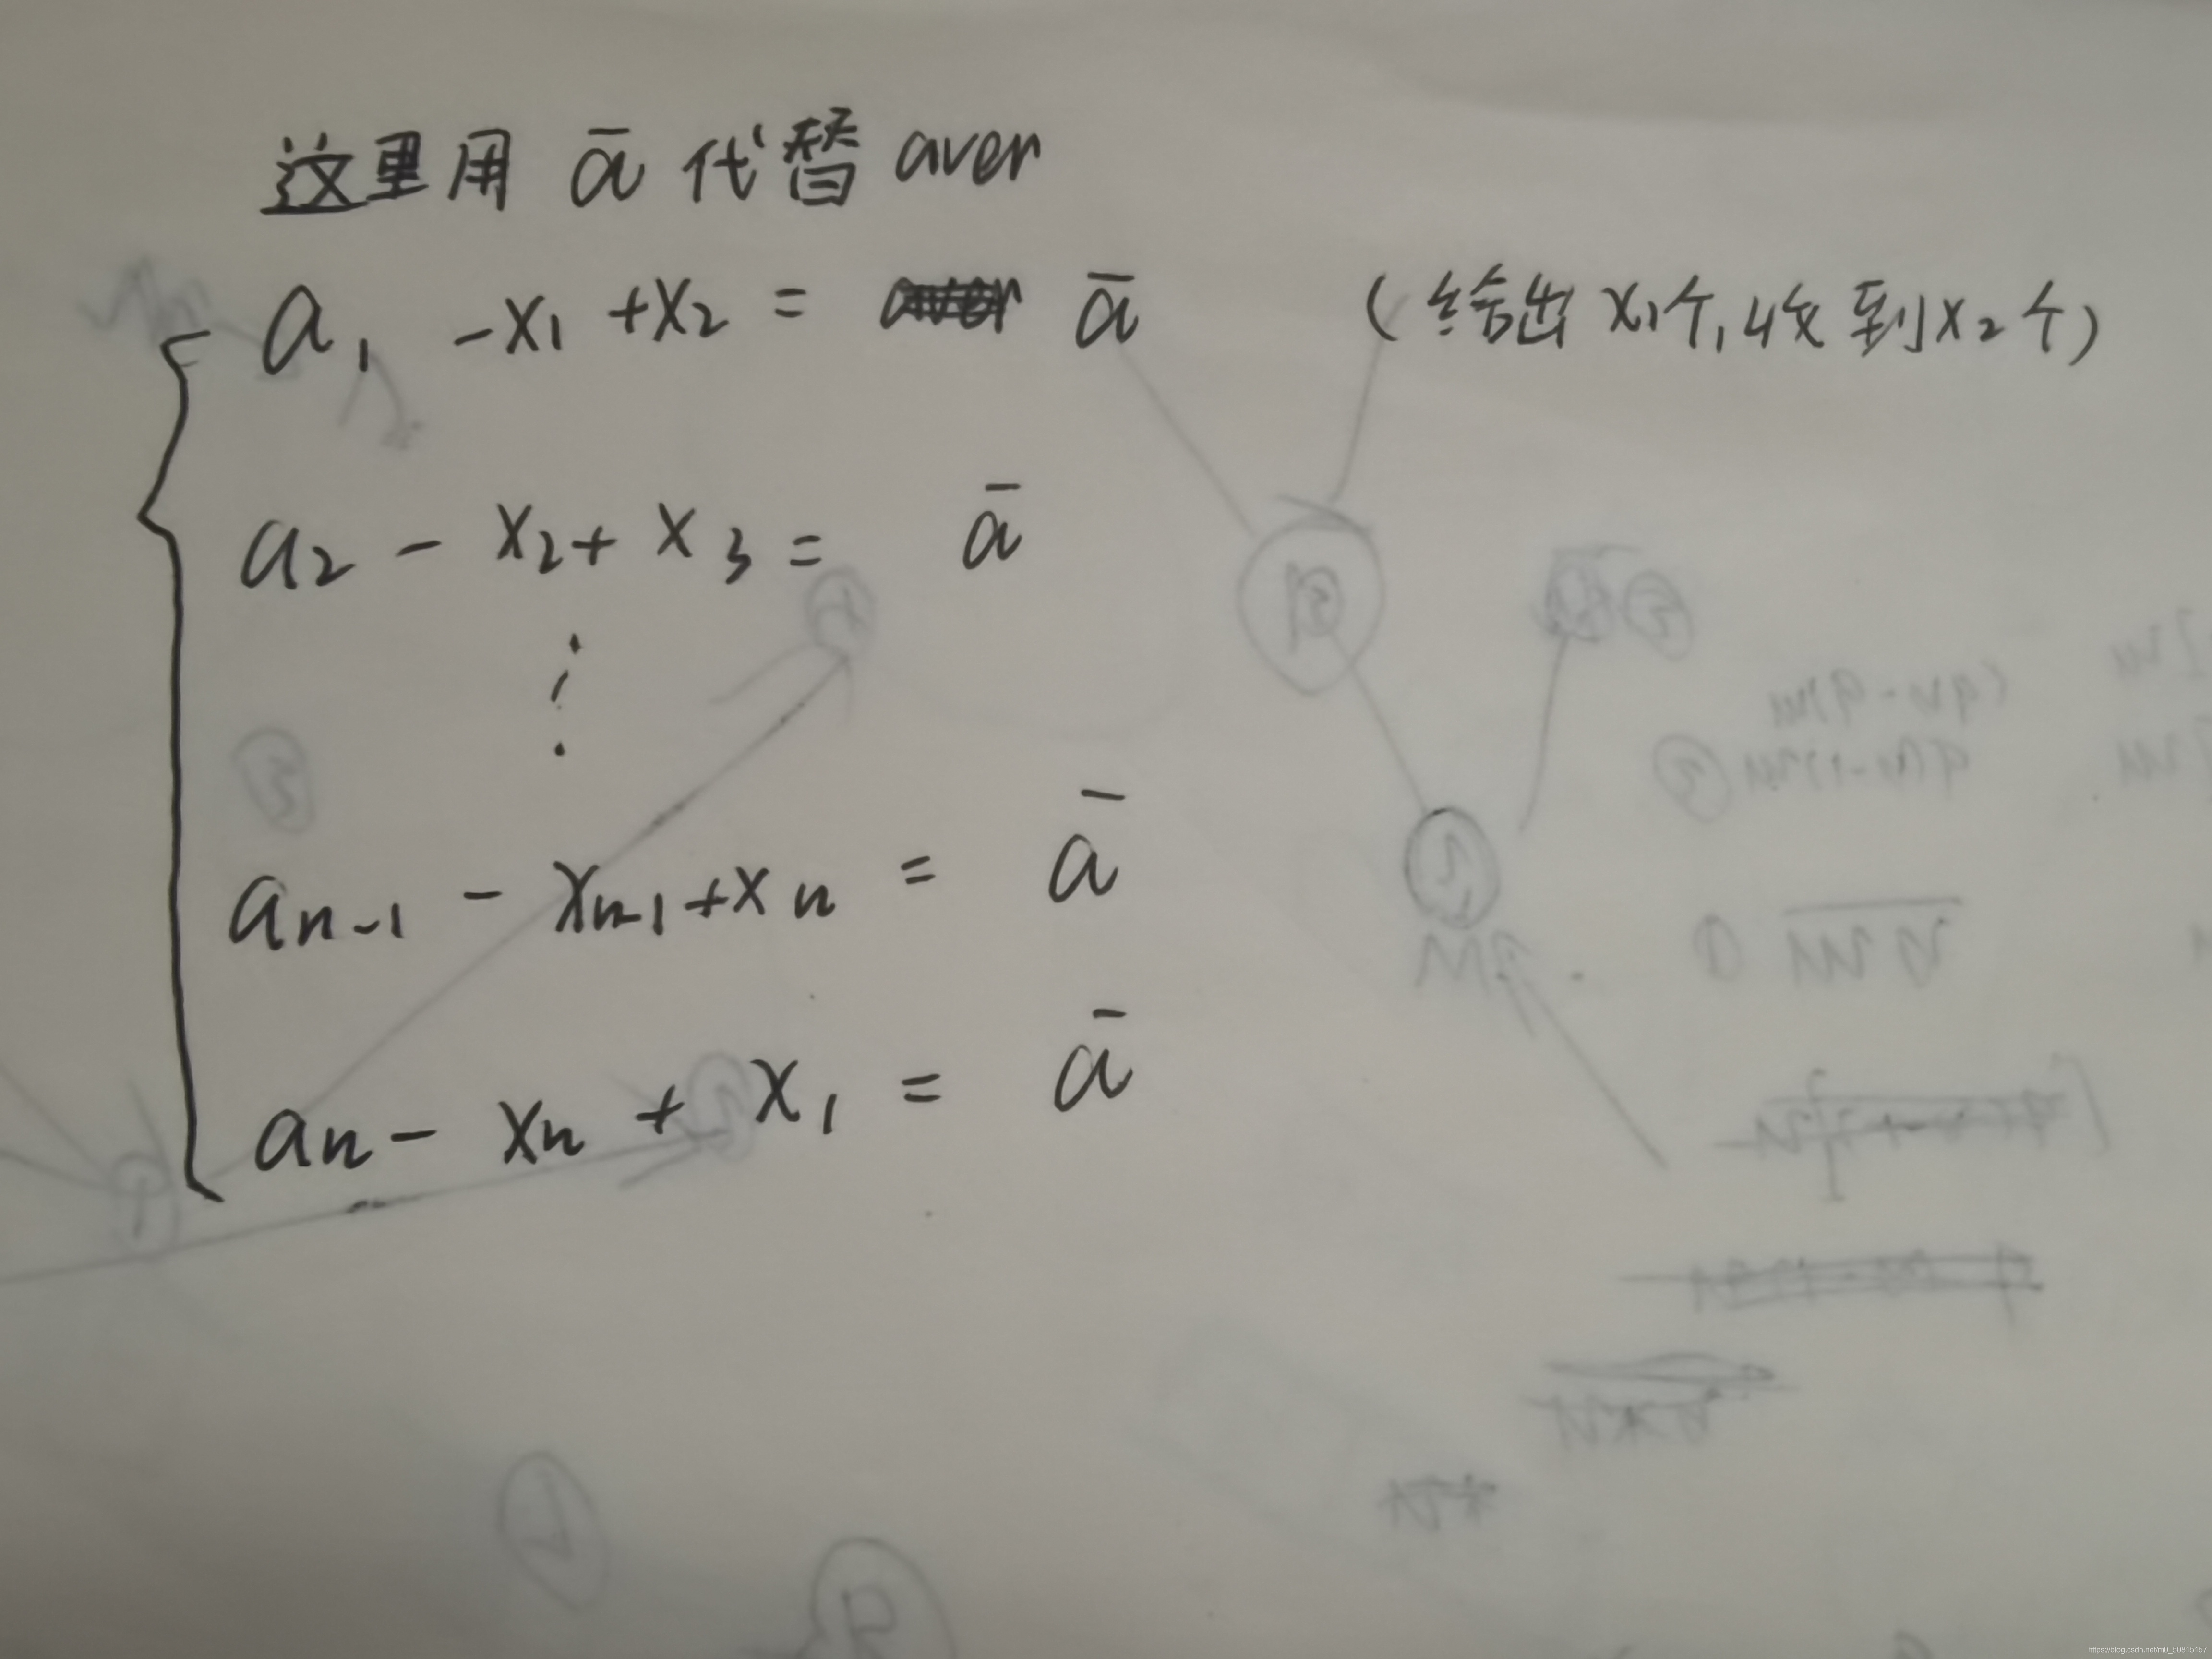 这里用 ā 代替 aver
a₁ -x₁ +x₂ = ā (给出x₁个,收到x₂个)
a₂ - x₂ + x₃ = ā
⋮
aₙ₋₁ - xₙ₋₁ + xₙ = ā
aₙ - xₙ + x₁ = ā
https://blog.csdn.net/m0_50815157